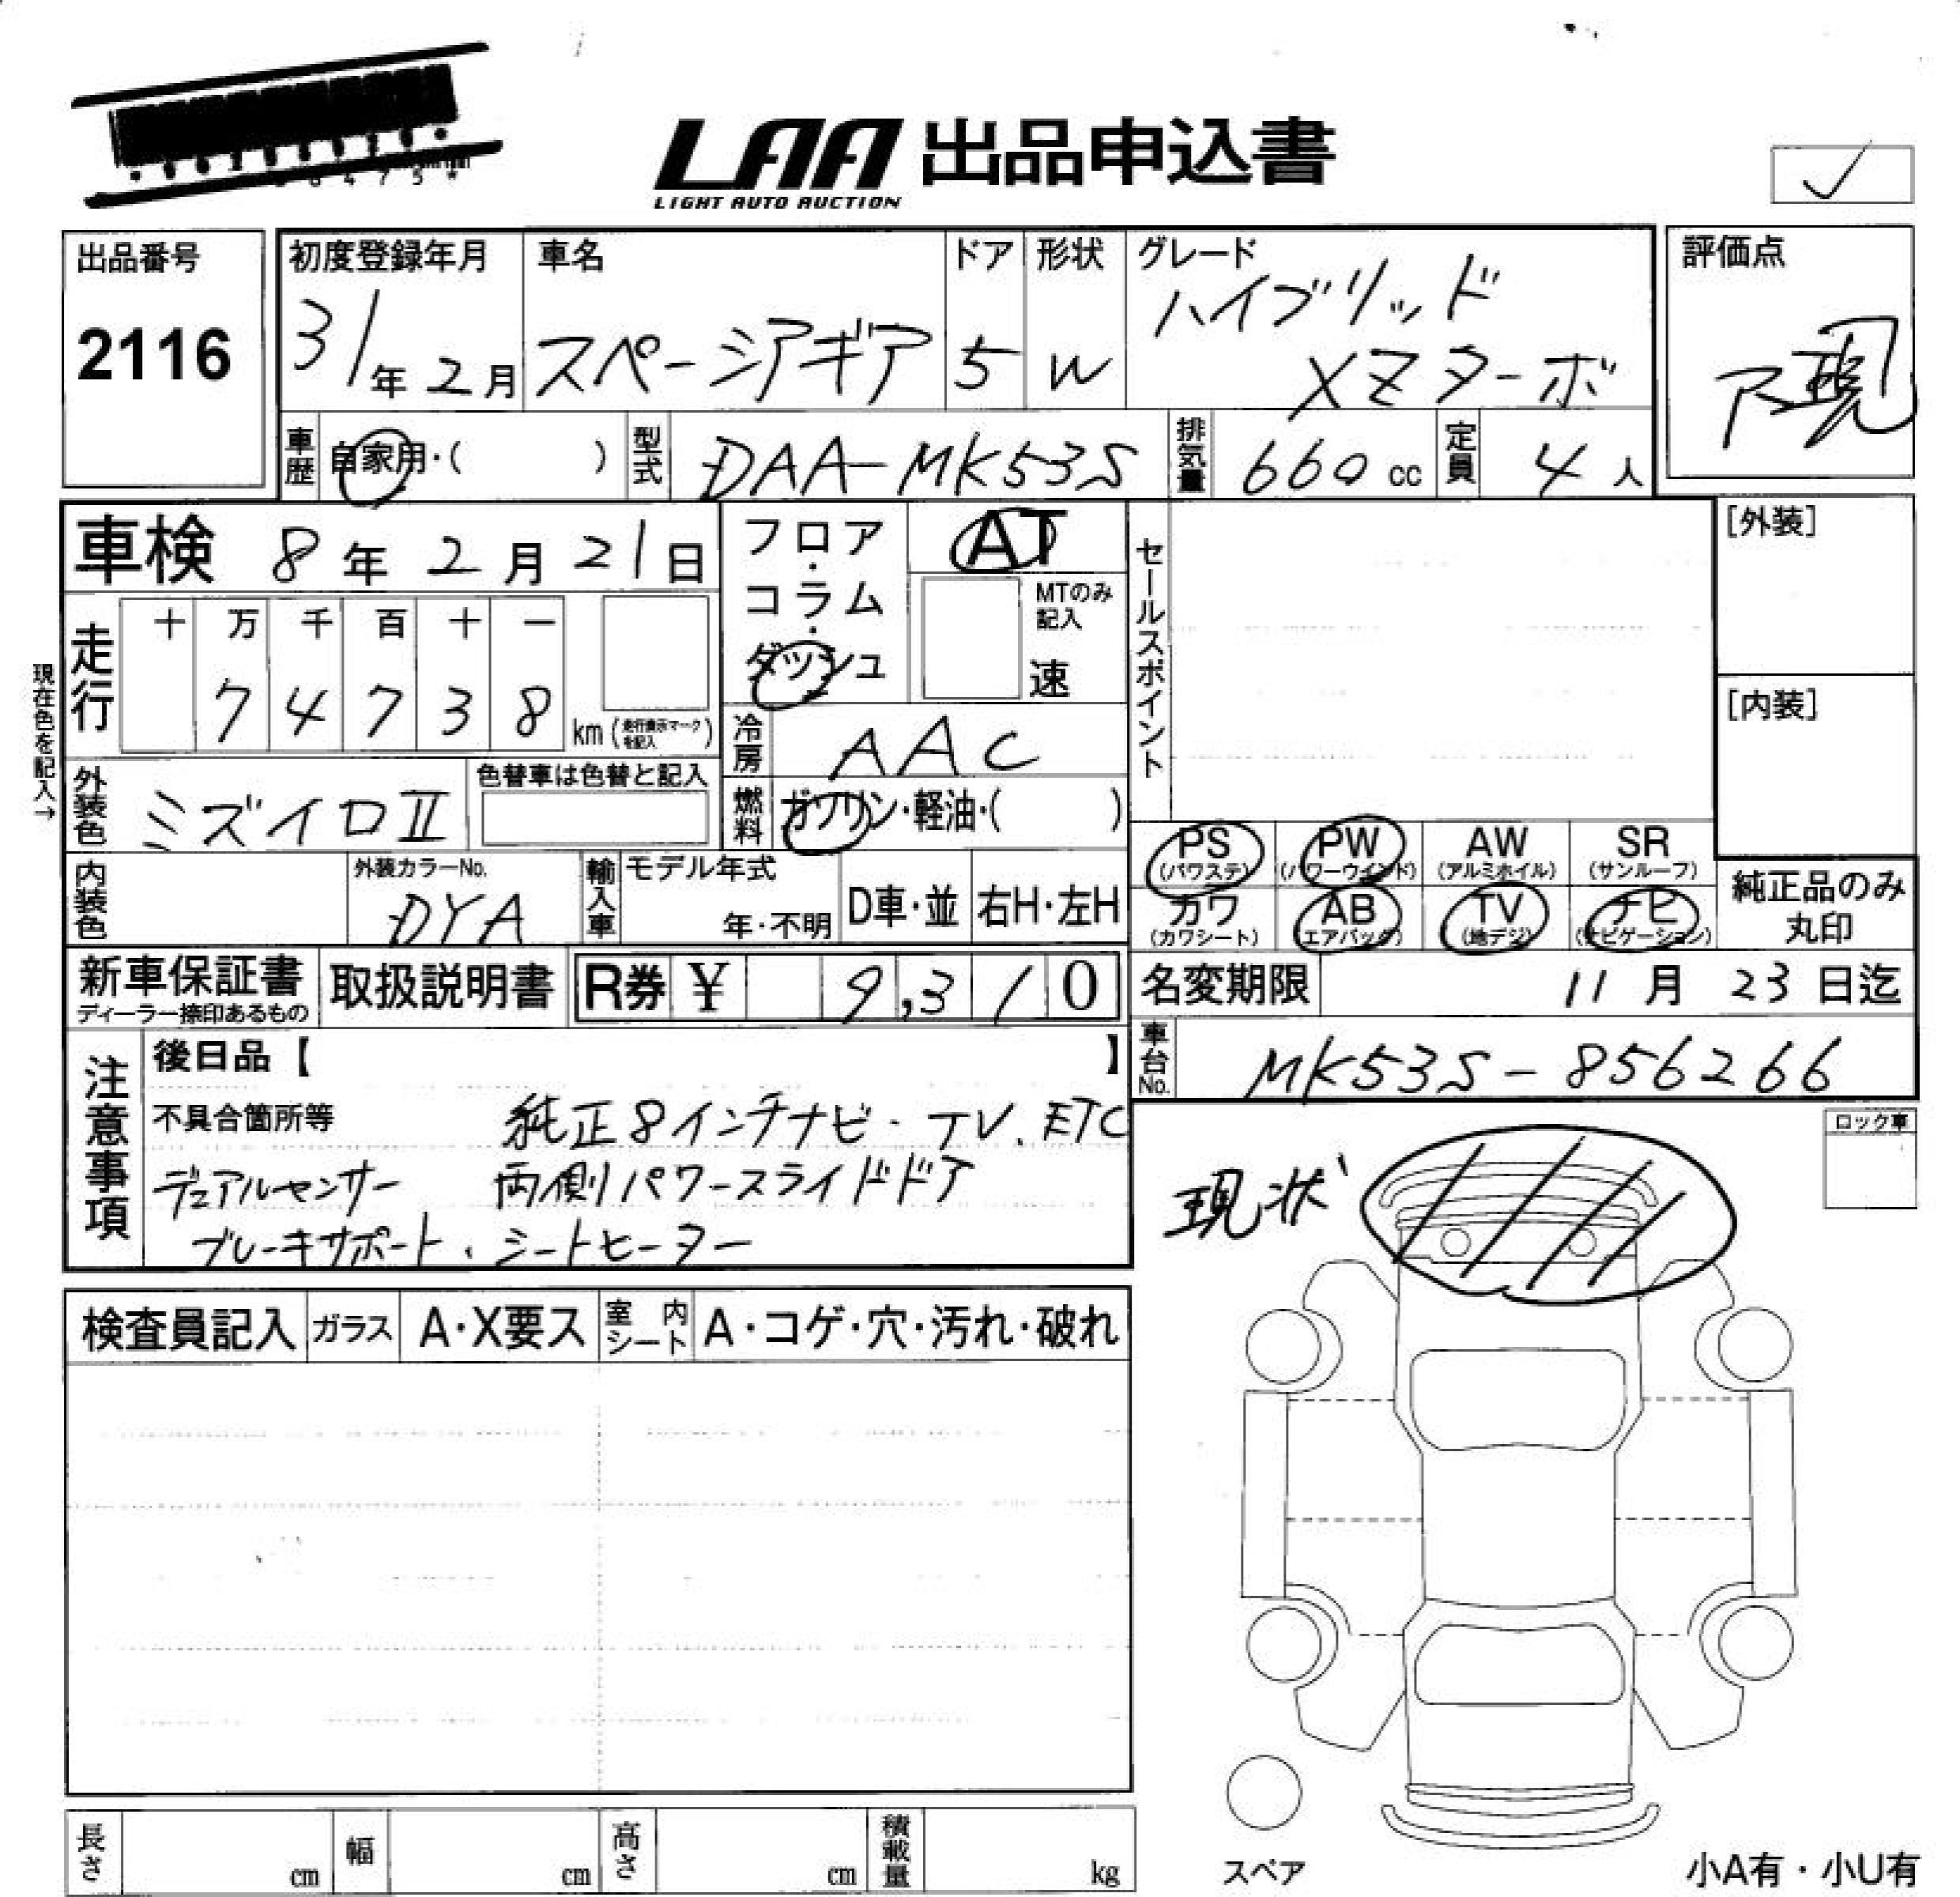 LAA 出品申込書
LIGHT AUTO AUCTION
出品番号
2116
初度登録年月
31年 2月
車名
スペーシアギア
ドア
5
形状
W
グレード
ハイブリッド
XZターボ
評価点
現
車歴 自家用・( )
型式 DAA-MK53S
排気量 660 cc
定員 4人
車検 8年 2月 21日
フロア・コラム・ダッシュ
AT
MTのみ記入
速
セールスポイント
[外装]
[内装]
現在色を記入→
走行
十 万 千 百 十 一
7 4 7 3 8
km (走行表示マークを記入)
冷房 AAC
外装色 ミズイロⅡ
色替車は色替と記入
燃料 ガソリン・軽油・( )
PS (パワステ)
PW (パワーウインド)
AW (アルミホイル)
SR (サンルーフ)
カワ (カワシート)
AB (エアバック)
TV (地デジ)
ナビ (ナビゲーション)
純正品のみ
丸印
内装色
外装カラーNo.
DYA
輸入車
モデル年式
年・不明
D車・並
右H・左H
新車保証書
ディーラー捺印あるもの
取扱説明書
R券 ¥ 9,310
名変期限 11月 23日迄
車台No. MK53S-856266
注意事項
後日品【 】
不具合箇所等 純正8インチナビ・TV、ETC
デュアルセンサー 両側パワースライドドア
ブレーキサポート、シートヒーター
ロック車
現状
検査員記入
ガラス A・X要ス
室内シート A・コゲ・穴・汚れ・破れ
長さ cm
幅 cm
高さ cm
積載量 kg
スペア
小A有・小U有